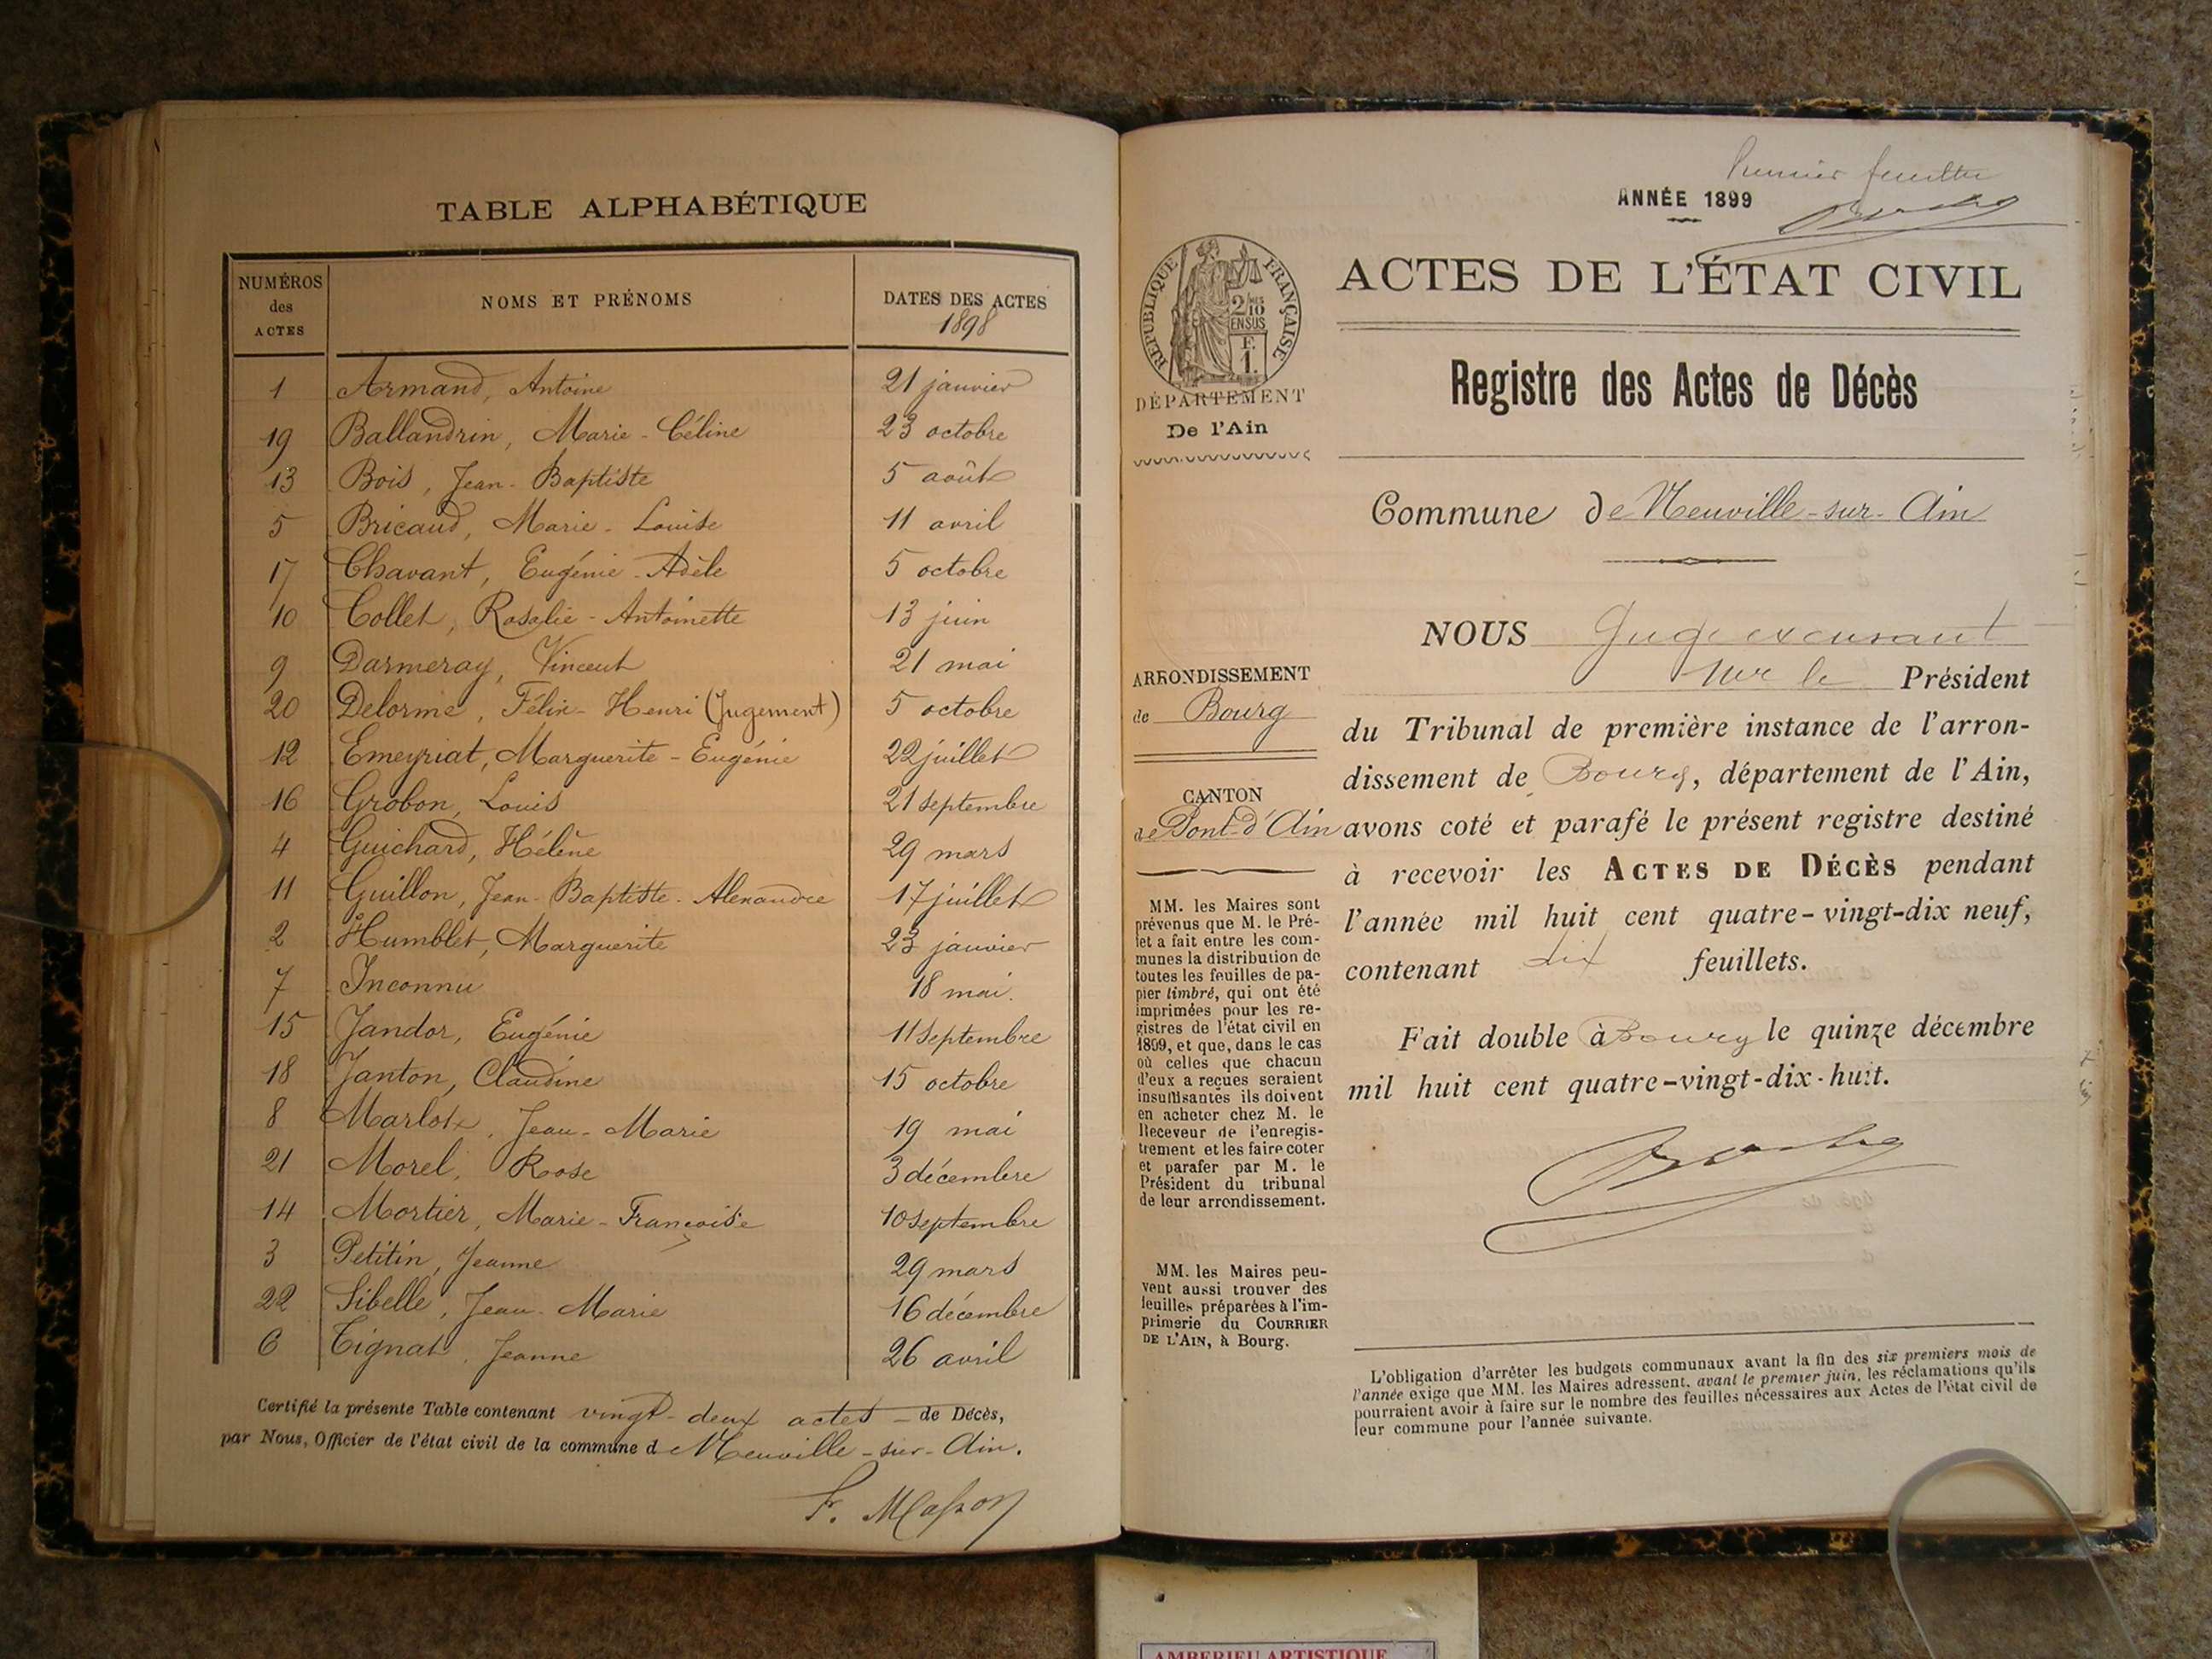 TABLE ALPHABÉTIQUE
NUMÉROS des ACTES NOMS ET PRÉNOMS DATES DES ACTES 1898
1 Armand, Antoine 21 janvier
19 Ballandrin, Marie-Céline 23 octobre
13 Bois, Jean-Baptiste 5 août
5 Bricaud, Marie-Louise 11 avril
17 Chavant, Eugénie-Adèle 5 octobre
10 Collet, Rosalie-Antoinette 13 juin
9 Darmeray, Vincent 21 mai
20 Delorme, Félix-Henri (Jugement) 5 octobre
12 Emeyriat, Marguerite-Eugénie 22 juillet
16 Grobon, Louis 21 septembre
4 Guichard, Hélène 29 mars
11 Guillon, Jean-Baptiste-Alexandre 17 juillet
2 Humblet, Marguerite 23 janvier
7 Inconnu 18 mai.
15 Jandor, Eugénie 11 septembre
18 Janton, Claudine 15 octobre
8 Marlot, Jean-Marie 19 mai
21 Morel, Rose 3 décembre
14 Mortier, Marie-Françoise 10 septembre
3 Petitin, Jeanne 29 mars
22 Sibelle, Jean-Marie 16 décembre
6 Tignat, Jeanne 26 avril
Certifié la présente Table contenant vingt-deux actes de Décès,
par Nous, Officier de l'état civil de la commune d Neuville-sur-Ain.
F. Masson
Premier feuillet
ANNÉE 1899
ACTES DE L'ÉTAT CIVIL
RÉPUBLIQUE FRANÇAISE
2/10 EN SUS
F. 1.
DÉPARTEMENT
De l'Ain
Registre des Actes de Décès
Commune de Neuville-sur-Ain
ARRONDISSEMENT
de Bourg
CANTON
de Pont-d'Ain
MM. les Maires sont
prévenus que M. le Pré-
fet a fait entre les com-
munes la distribution de
toutes les feuilles de pa-
pier timbré, qui ont été
imprimées pour les re-
gistres de l'état civil en
1899, et que, dans le cas
où celles que chacun
d'eux a reçues seraient
insuffisantes ils doivent
en acheter chez M. le
Receveur de l'enregis-
trement et les faire coter
et parafer par M. le
Président du tribunal
de leur arrondissement.
MM. les Maires peu-
vent aussi trouver des
feuilles préparées à l'im-
primerie du COURRIER
DE L'AIN, à Bourg.
NOUS Juge
le Président
du Tribunal de première instance de l'arron-
dissement de Bourg, département de l'Ain,
avons coté et parafé le présent registre destiné
à recevoir les ACTES DE DÉCÈS pendant
l'année mil huit cent quatre-vingt-dix neuf,
contenant dix feuillets.
Fait double à Bourg le quinze décembre
mil huit cent quatre-vingt-dix-huit.
L'obligation d'arrêter les budgets communaux avant la fin des six premiers mois de
l'année exige que MM. les Maires adressent, avant le premier juin, les réclamations qu'ils
pourraient avoir à faire sur le nombre des feuilles nécessaires aux Actes de l'état civil de
leur commune pour l'année suivante.
AMBERIEU ARTISTIQUE